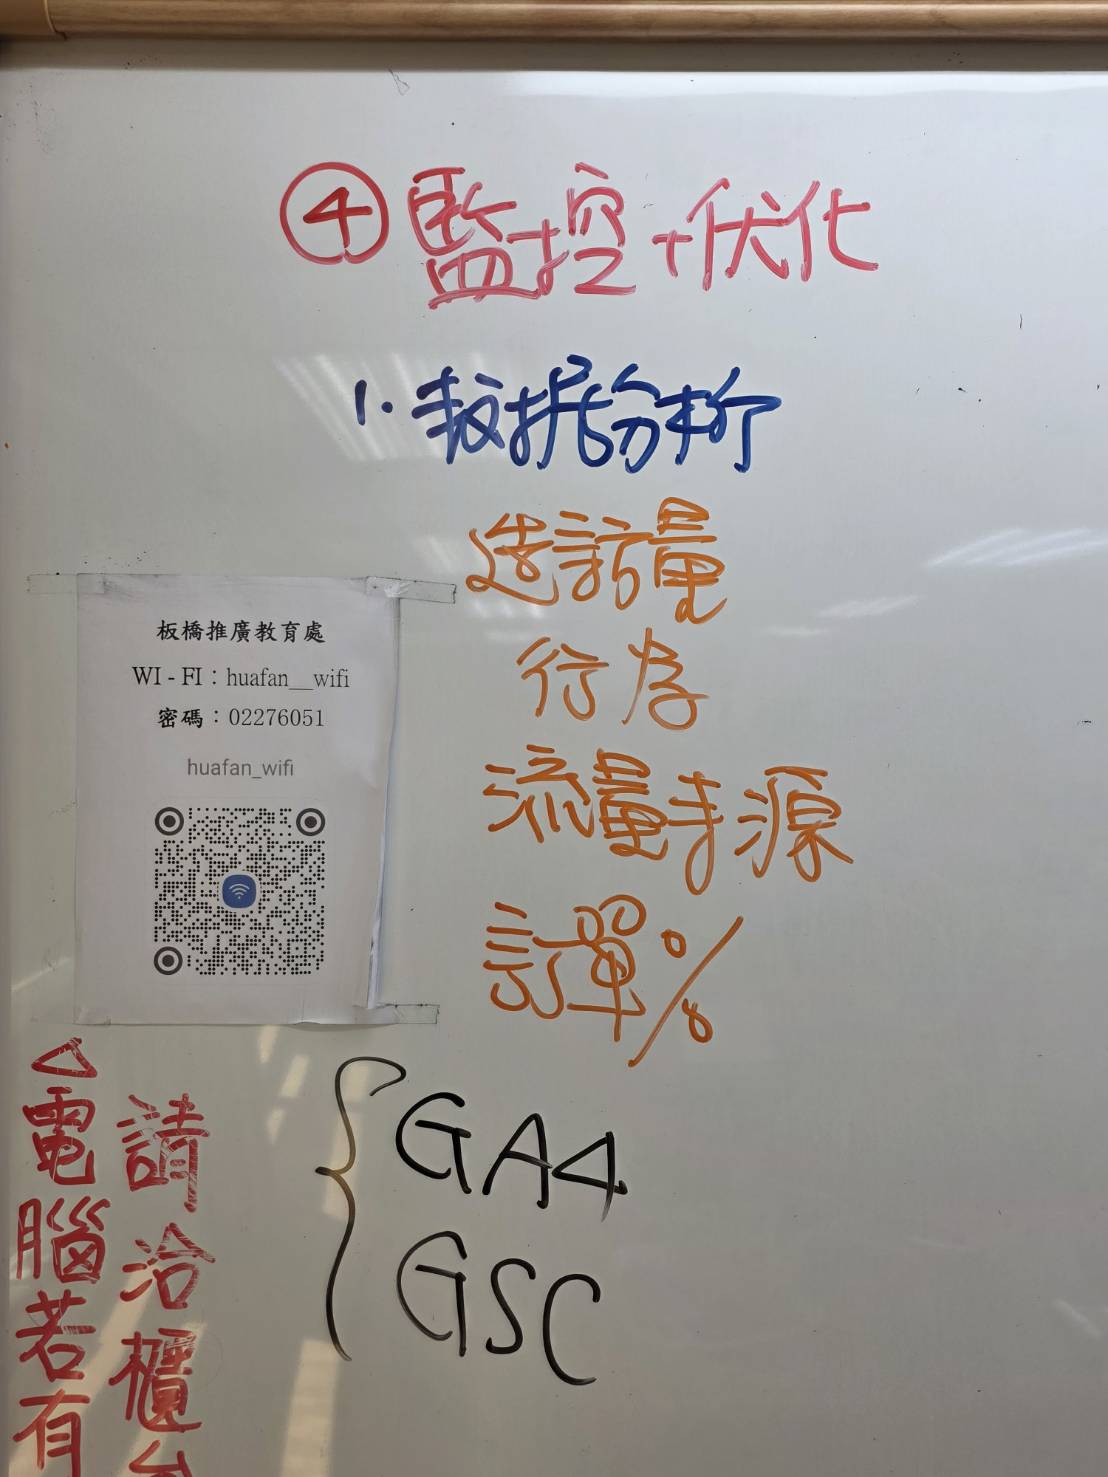 ④監控+优化
1. 数据分析
造訪量
行為
流量来源
訂單%
板橋推廣教育處
WI - FI：huafan__wifi
密碼：02276051
huafan_wifi
{GA4
GSC
△電腦若有
請洽櫃台